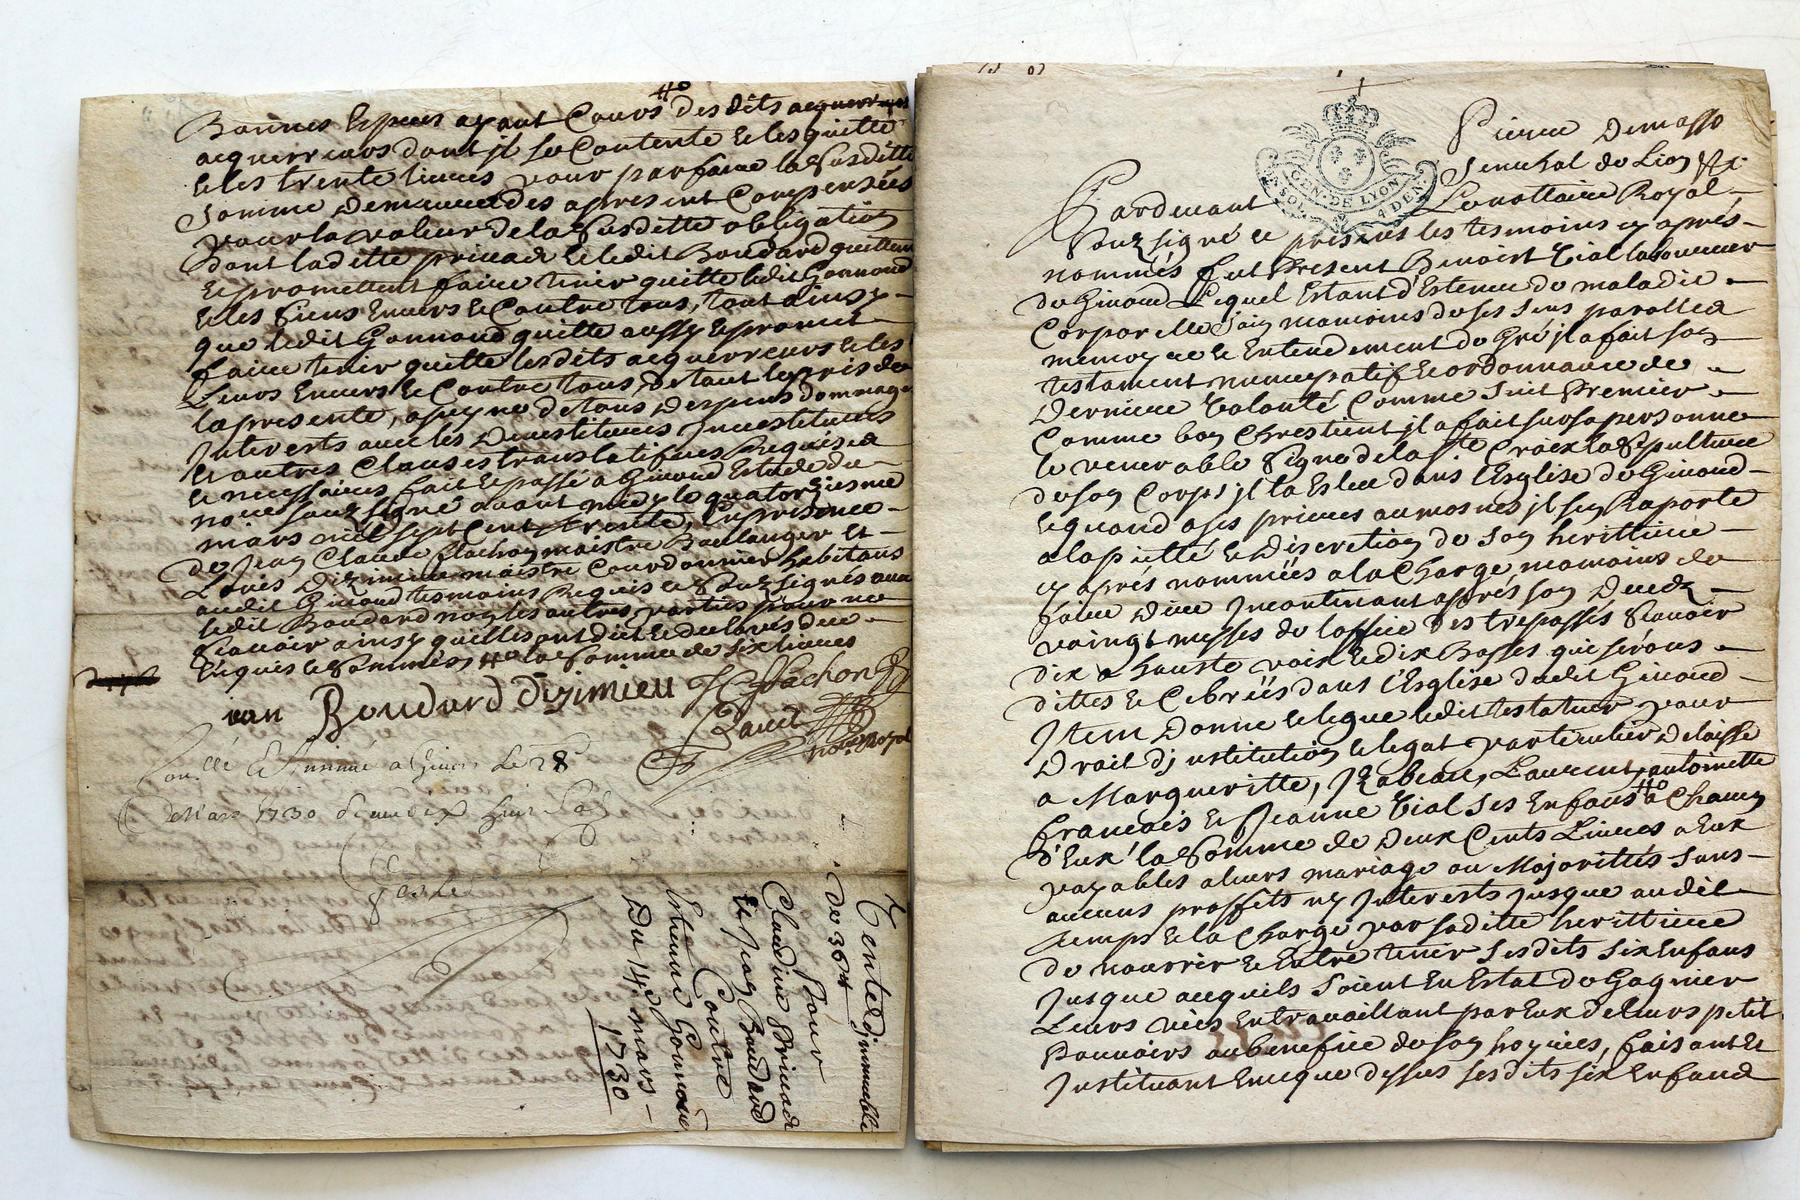 Bonnes Especes ayant Cours #o des dits acquerreurs
acquerreurs dont jl se Contente & les quitte
& les trente livres pour parfaire la susditte
somme demeurées apresent Compensées
pour la valeur de la susditte obligation
dont laditte privade & ledit Boudard quittent
& promettent faire tenir quitte ledit Gonnond
& les siens Envers & Contre tous, tout ainsy
que ledit Gonnond quitte aussy & promet
faire tenir quitte lesdits acquerreurs & les
Leurs Envers & Contre tous, de tout le pris de
la presente, apeyne de tous Despens dommages
Jnterests avec les Devestitures Jnvestitures
& autres Clauses translatifves Requises
& necessaires fait & passé a Givord Estude du
no.re souz signé avant midy le quatorziesme
mars mil sept Cent trente, En presence
de Jean Claude Flachon maistre Boulanger et
Louis Dizimieu maistre Courdonnier habitans
audit Givord tesmoins Requis & souz signés avec
ledit Boudard non les autres parties pour ne
scavoir ainsy quelles ont dit & declarés de ce
Enquis & sommées #o la somme de six livres
Boudard Dizimieu JC Flachon
no.re Royal
Con.llé & Insinué a Givors Le 28
de Mars 1730
Vente d'immeuble
des 36 #
Pour
Claudine Privade
& Jean Boudard
Contre
Estienne Gonnond
Du 14e mars
1730
Pierre Demasso
Senechal de Lion &c.
GEN. DE LYON
4 DEN.
Pardevant Le nottaire Royal
souz signé & presents les tesmoins cy aprés
nommés fut Present Benoist Vial laboureur
de Givord Lequel Estant d'Estenu de maladie
Corporelle sain neamoins de ses sens parolles
memoyre & Entendement de Gré jl a fait son
testament nuncupatif & ordonnance de
Derniere Volonté Comme suit Premier
Comme bon Chrestient jl a fait sur sa personne
le venerable signe de la S.te Croix la sepulture
de son Corps jl la Eslue dans l'Esglise de Givord
& quand a ses prieres aumosnes jl s'en Raporte
a la pietté & Discretion de son herittiere
cy aprés nommées a la Charge neamoins de
faire Dire Jncontinant aprés son Decedz
vaingt messes de l'office des trepassés scavoir
dix a hauste voix & dix basses qui seronts
dittes & Celebréés dans l'Esglise dudit Givord
Jtem Donne & legue ledit testateur pour
Droit d'jnstitution & legat particulier delaisse
a Margueritte, Jzabeau, Laurent, antoinette
francois & Jeanne Vial ses Enfans #o a Chacun
d'Eux la somme de Deux Cents Livres a Eux
payables aleurs mariage ou Majorittés sans
aucuns proffits ny Jnterests jusque audit
temps & a la Charge par saditte herittiere
de nourrir & Entretenir sesdits six Enfans
Jusque acequils soient En Estat de Gagnier
Leurs vies En travaillant par Eux de leurs petit
Pouvoirs au benefice de son hoyries, faisant Et
Jnstituant Enceque dessus sesdits six Enfans